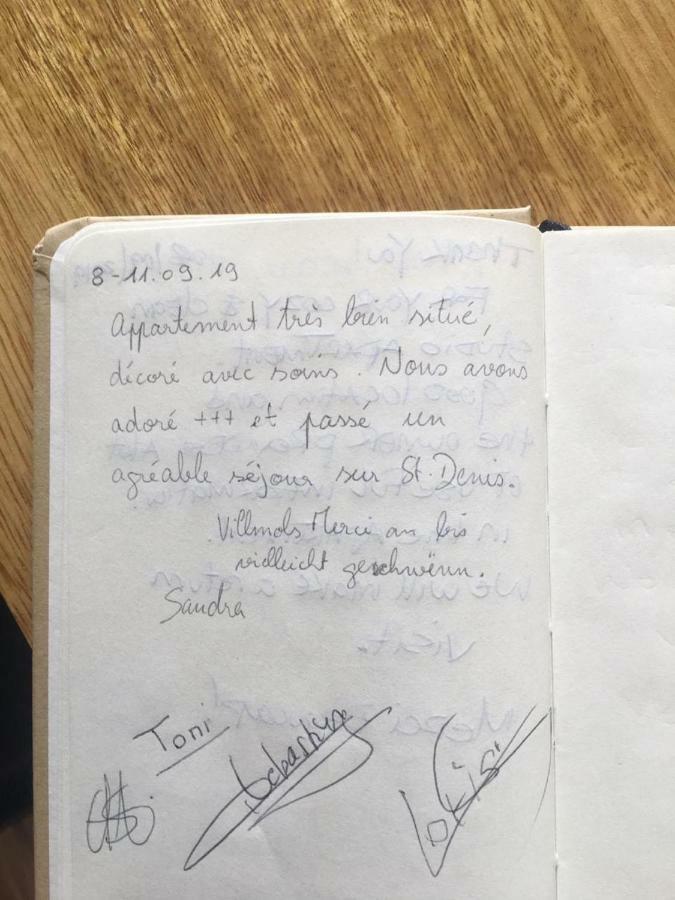 8-11.09.19
Appartement très bien situé,
décoré avec soins. Nous avons
adoré +++ et passé un
agréable séjour sur St. Denis.
Villmols Merci an bis
vielleicht geschwënn.
Sandra
Toni
Sebastien